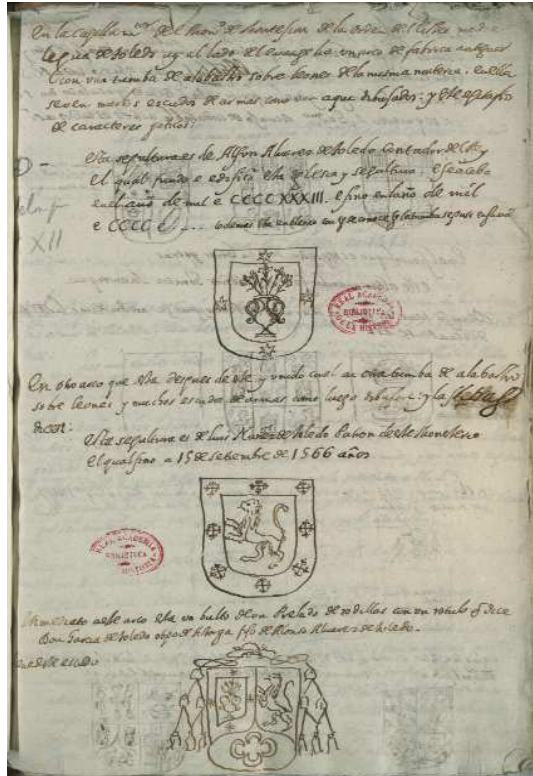 En la Capilla mor del Monº de Montesion de la orden del Cister media
legua de Toledo ay al lado del evangelio un arco de fabrica antigua
con una tumba de alabastro sobre leones de la misma materia. en ella
se ven muchos escudos de armas como van aqui dibujados: y este epitafio
de caracteres goticos:
Esta sepultura es de Alfon Alvarez de toledo Contador del Rey
el qual fundo e edificó esta iglesia y sepultura. e se acabo
en el año de mil e CCCCXXXIII. e fino en laño de mil
e CCCC e .....
XII
REAL ACADEMIA
BIBLIOTECA
DE LA HISTORIA
En otro arco que esta despues de este y unido con el ay otra tumba de alabastro
sobre leones y muchos escudos de armas como luego
dicen:
Esta sepultura es de Luis Nuñez de toledo Patron de este Monesterio
el qual fino a 15 de setembre de 1566 años
REAL ACADEMIA
BIBLIOTECA
HISTORIA
Inmediato a este arco esta un bulto de un Prelado de rodillas con un rotulo q dice
Don Garcia de toledo obpo de Astorga fijo de Alonso Alvarez de toledo.
con este escudo